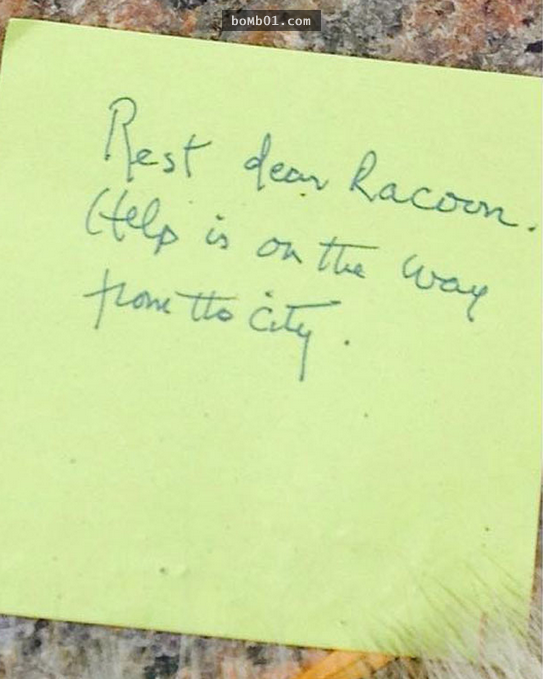 boMb01.com
Rest dear Racoon.
Help is on the way
from the city.